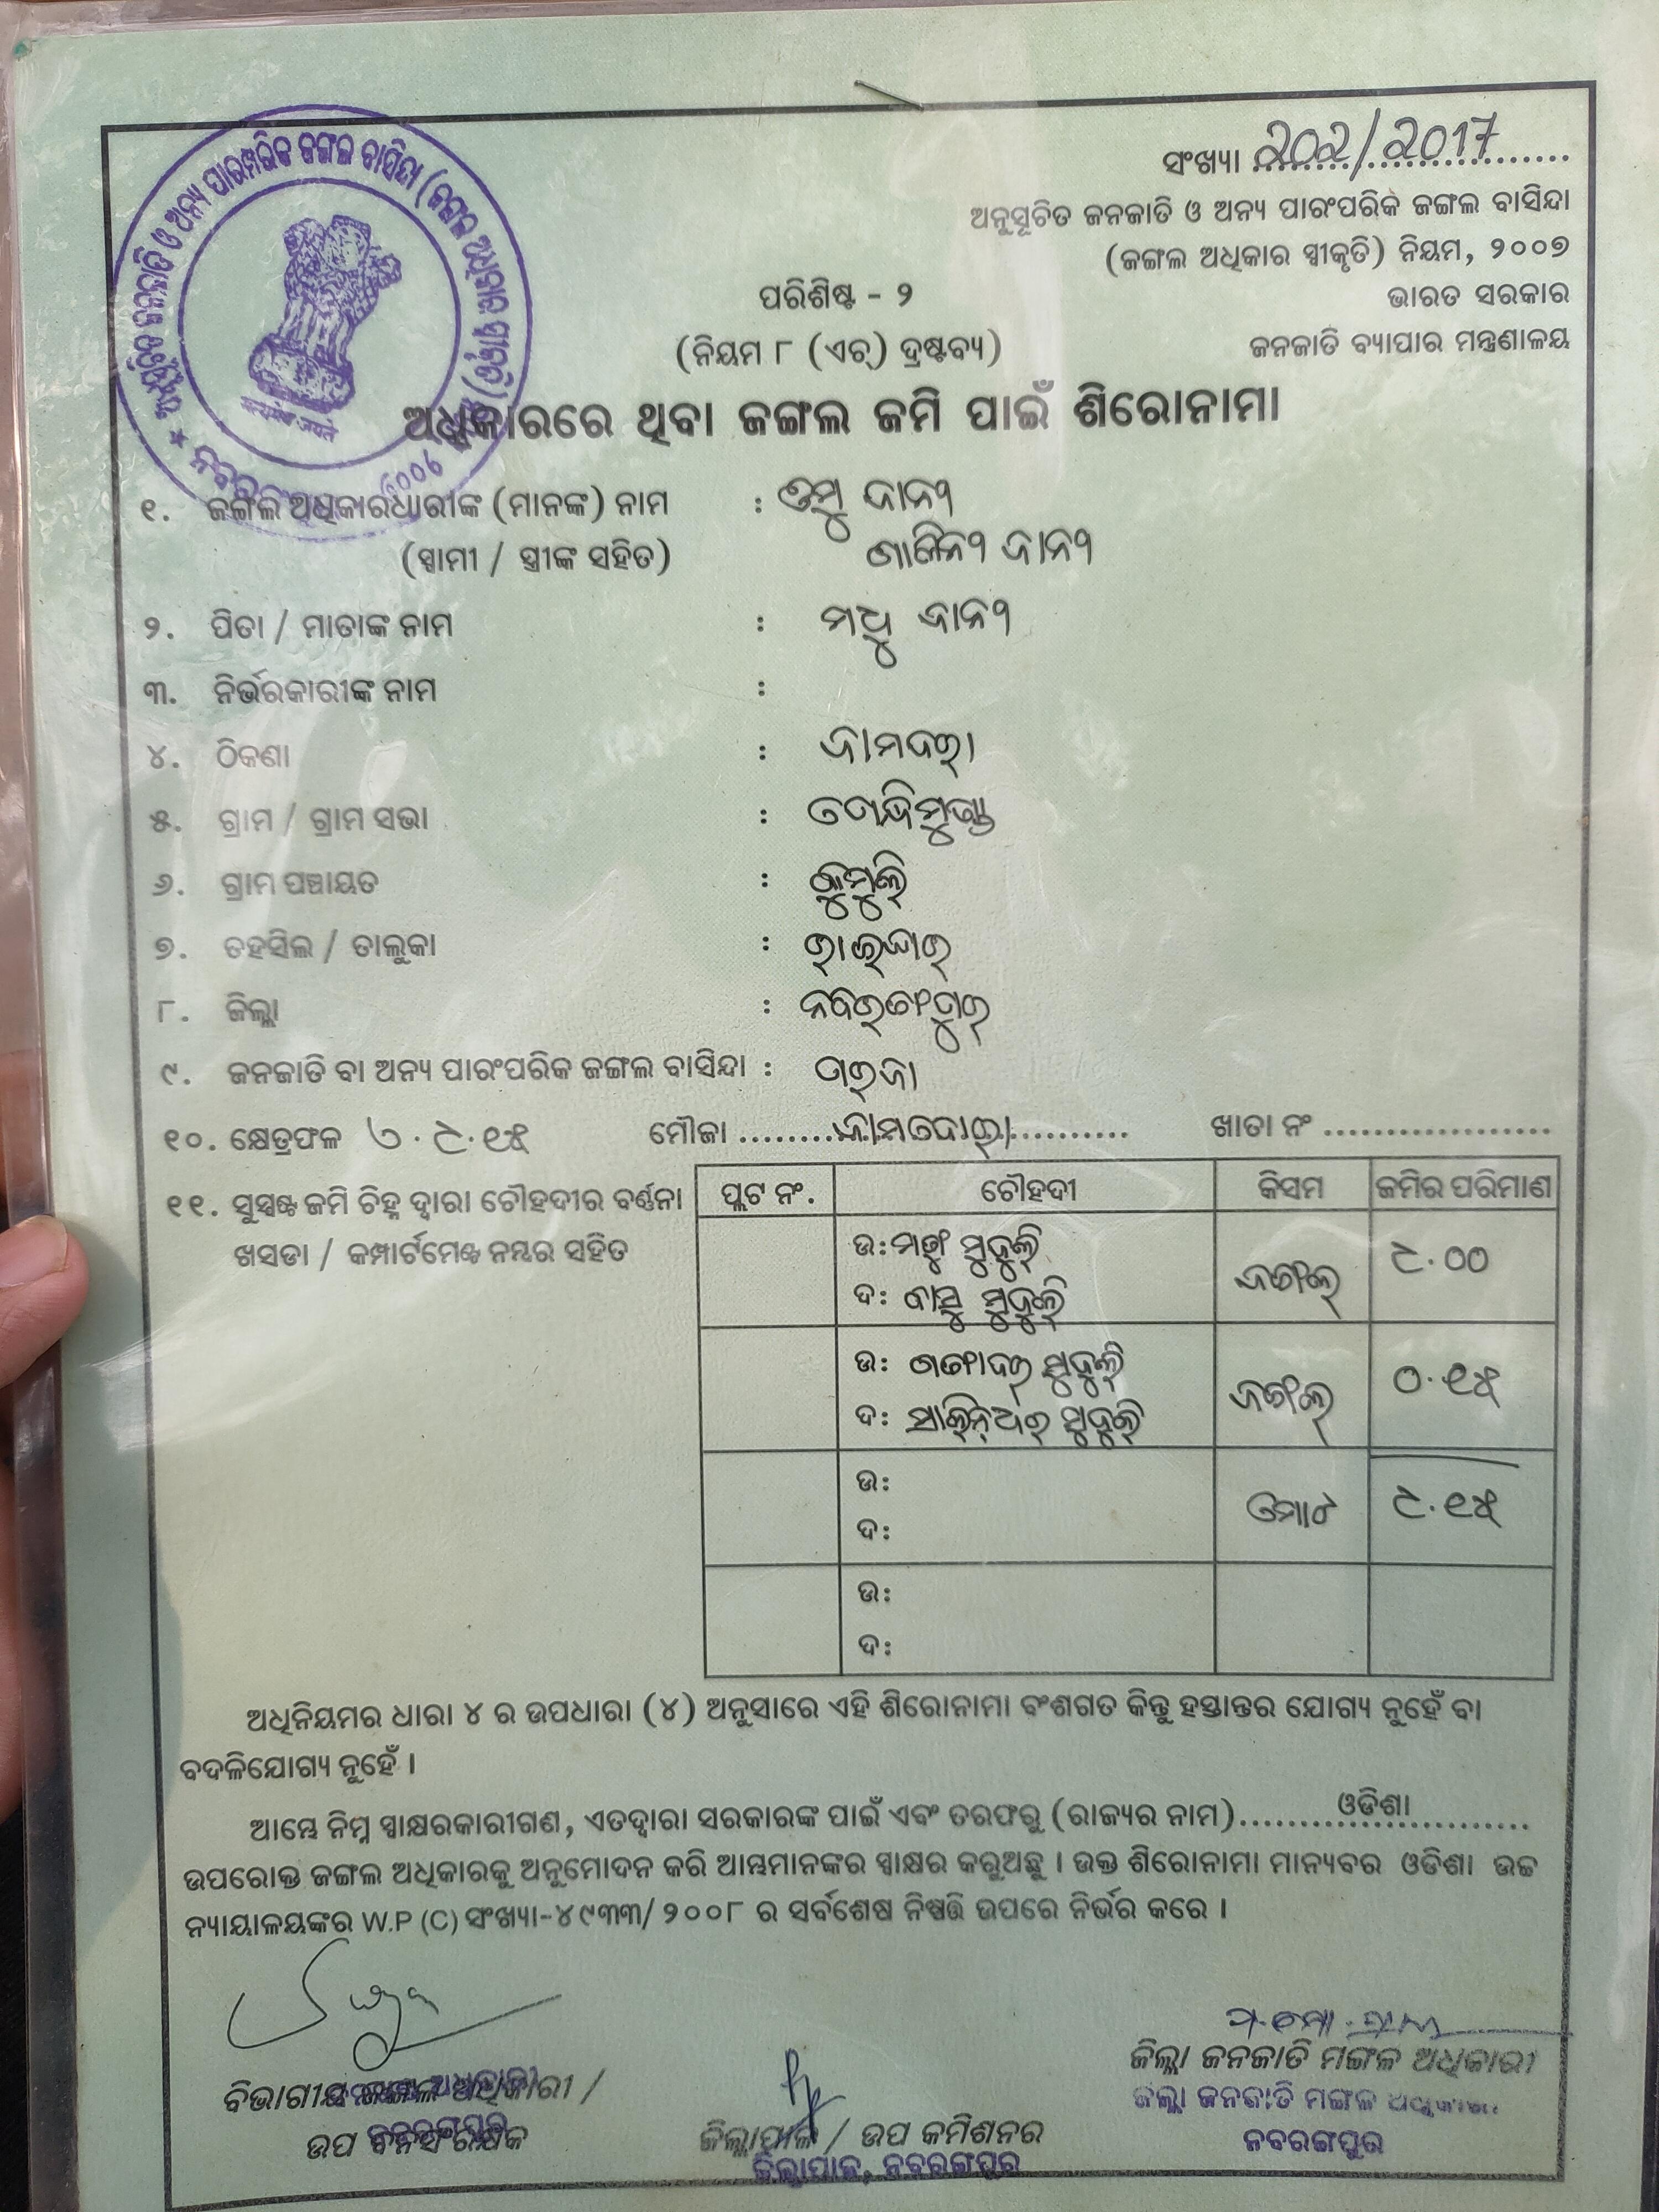 ସଂଖ୍ୟା ୨୦୨/୨017
ଅନୁସୂଚିତ ଜନଜାତି ଓ ଅନ୍ୟ ପାରଂପରିକ ଜଙ୍ଗଲ ବାସିନ୍ଦା
(ଜଙ୍ଗଲ ଅଧିକାର ସ୍ୱୀକୃତି) ନିୟମ, ୨୦୦୭
ପରିଶିଷ୍ଟ - ୨
ଭାରତ ସରକାର
(ନିୟମ ୮ (ଏଚ୍) ଦ୍ରଷ୍ଟବ୍ୟ)
ଜନଜାତି ବ୍ୟାପାର ମନ୍ତ୍ରଣାଳୟ
ଅଧିକାରରେ ଥିବା ଜଙ୍ଗଲ ଜମି ପାଇଁ ଶିରୋନାମା
୧. ଜଙ୍ଗଲ ଅଧିକାରଧାରୀଙ୍କ (ମାନଙ୍କ) ନାମ :
(ସ୍ୱାମୀ / ସ୍ତ୍ରୀଙ୍କ ସହିତ)
୨. ପିତା / ମାତାଙ୍କ ନାମ : ମଧୁ
୩. ନିର୍ଭରକାରୀଙ୍କ ନାମ :
୪. ଠିକଣା : ଜାମଦରା
୫. ଗ୍ରାମ / ଗ୍ରାମ ସଭା :
୬. ଗ୍ରାମ ପଞ୍ଚାୟତ : କୁମୁଲି
୭. ତହସିଲ / ତାଲୁକା : ରାଇଘର
୮. ଜିଲ୍ଲା : ନବରଙ୍ଗପୁର
୯. ଜନଜାତି ବା ଅନ୍ୟ ପାରଂପରିକ ଜଙ୍ଗଲ ବାସିନ୍ଦା :
୧୦. କ୍ଷେତ୍ରଫଳ ୯.୧୫ ମୌଜା ଜାମଦୋରା ଖାତା ନଂ ...................
୧୧. ସୁସ୍ପଷ୍ଟ ଜମି ଚିହ୍ନ ଦ୍ୱାରା ଚୌହଦୀର ବର୍ଣ୍ଣନା
ଖସଡା / କମ୍ପାର୍ଟମେଣ୍ଟ ନମ୍ବର ସହିତ
ପ୍ଲଟ ନଂ. ଚୌହଦୀ କିସମ ଜମିର ପରିମାଣ
ଉ: ମଙ୍ଗୁ ମୁଦୁଲି
ଦ: ବାସୁ ମୁଦୁଲି
ଜଙ୍ଗଲ ୯.୦୦
ଉ: ଗଙ୍ଗାଧର ମୁଦୁଲି
ଦ: ମୁଦୁଲି
ଜଙ୍ଗଲ ୦.୧୫
ଉ:
ଦ:
୯.୧୫
ଉ:
ଦ:
ଅଧିନିୟମର ଧାରା ୪ ର ଉପଧାରା (୪) ଅନୁସାରେ ଏହି ଶିରୋନାମା ବଂଶଗତ କିନ୍ତୁ ହସ୍ତାନ୍ତର ଯୋଗ୍ୟ ନୁହେଁ ବା
ବଦଳିଯୋଗ୍ୟ ନୁହେଁ ।
ଆମ୍ଭେ ନିମ୍ନ ସ୍ୱାକ୍ଷରକାରୀଗଣ, ଏତଦ୍ୱାରା ସରକାରଙ୍କ ପାଇଁ ଏବଂ ତରଫରୁ (ରାଜ୍ୟର ନାମ) ଓଡିଶା
ଉପରୋକ୍ତ ଜଙ୍ଗଲ ଅଧିକାରକୁ ଅନୁମୋଦନ କରି ଆମ୍ଭମାନଙ୍କର ସ୍ୱାକ୍ଷର କରୁଅଛୁ । ଉକ୍ତ ଶିରୋନାମା ମାନ୍ୟବର ଓଡିଶା ଉଚ୍ଚ
ନ୍ୟାୟାଳୟଙ୍କର W.P (C) ସଂଖ୍ୟା-୪୯୩୩/୨୦୦୮ ର ସର୍ବଶେଷ ନିଷ୍ପତ୍ତି ଉପରେ ନିର୍ଭର କରେ ।
ଜିଲ୍ଲା ଜନଜାତି ମଙ୍ଗଳ ଅଧିକାରୀ
ଜିଲ୍ଲା ଜନଜାତି ମଙ୍ଗଳ
ନବରଙ୍ଗପୁର
ବିଭାଗୀୟ ଜଙ୍ଗଲ ଅଧିକାରୀ /
ନବରଙ୍ଗପୁର
ଉପ ବନସଂରକ୍ଷକ
ଜିଲ୍ଲାପାଳ / ଉପ କମିଶନର
ଜିଲ୍ଲାପାଳ, ନବରଙ୍ଗପୁର